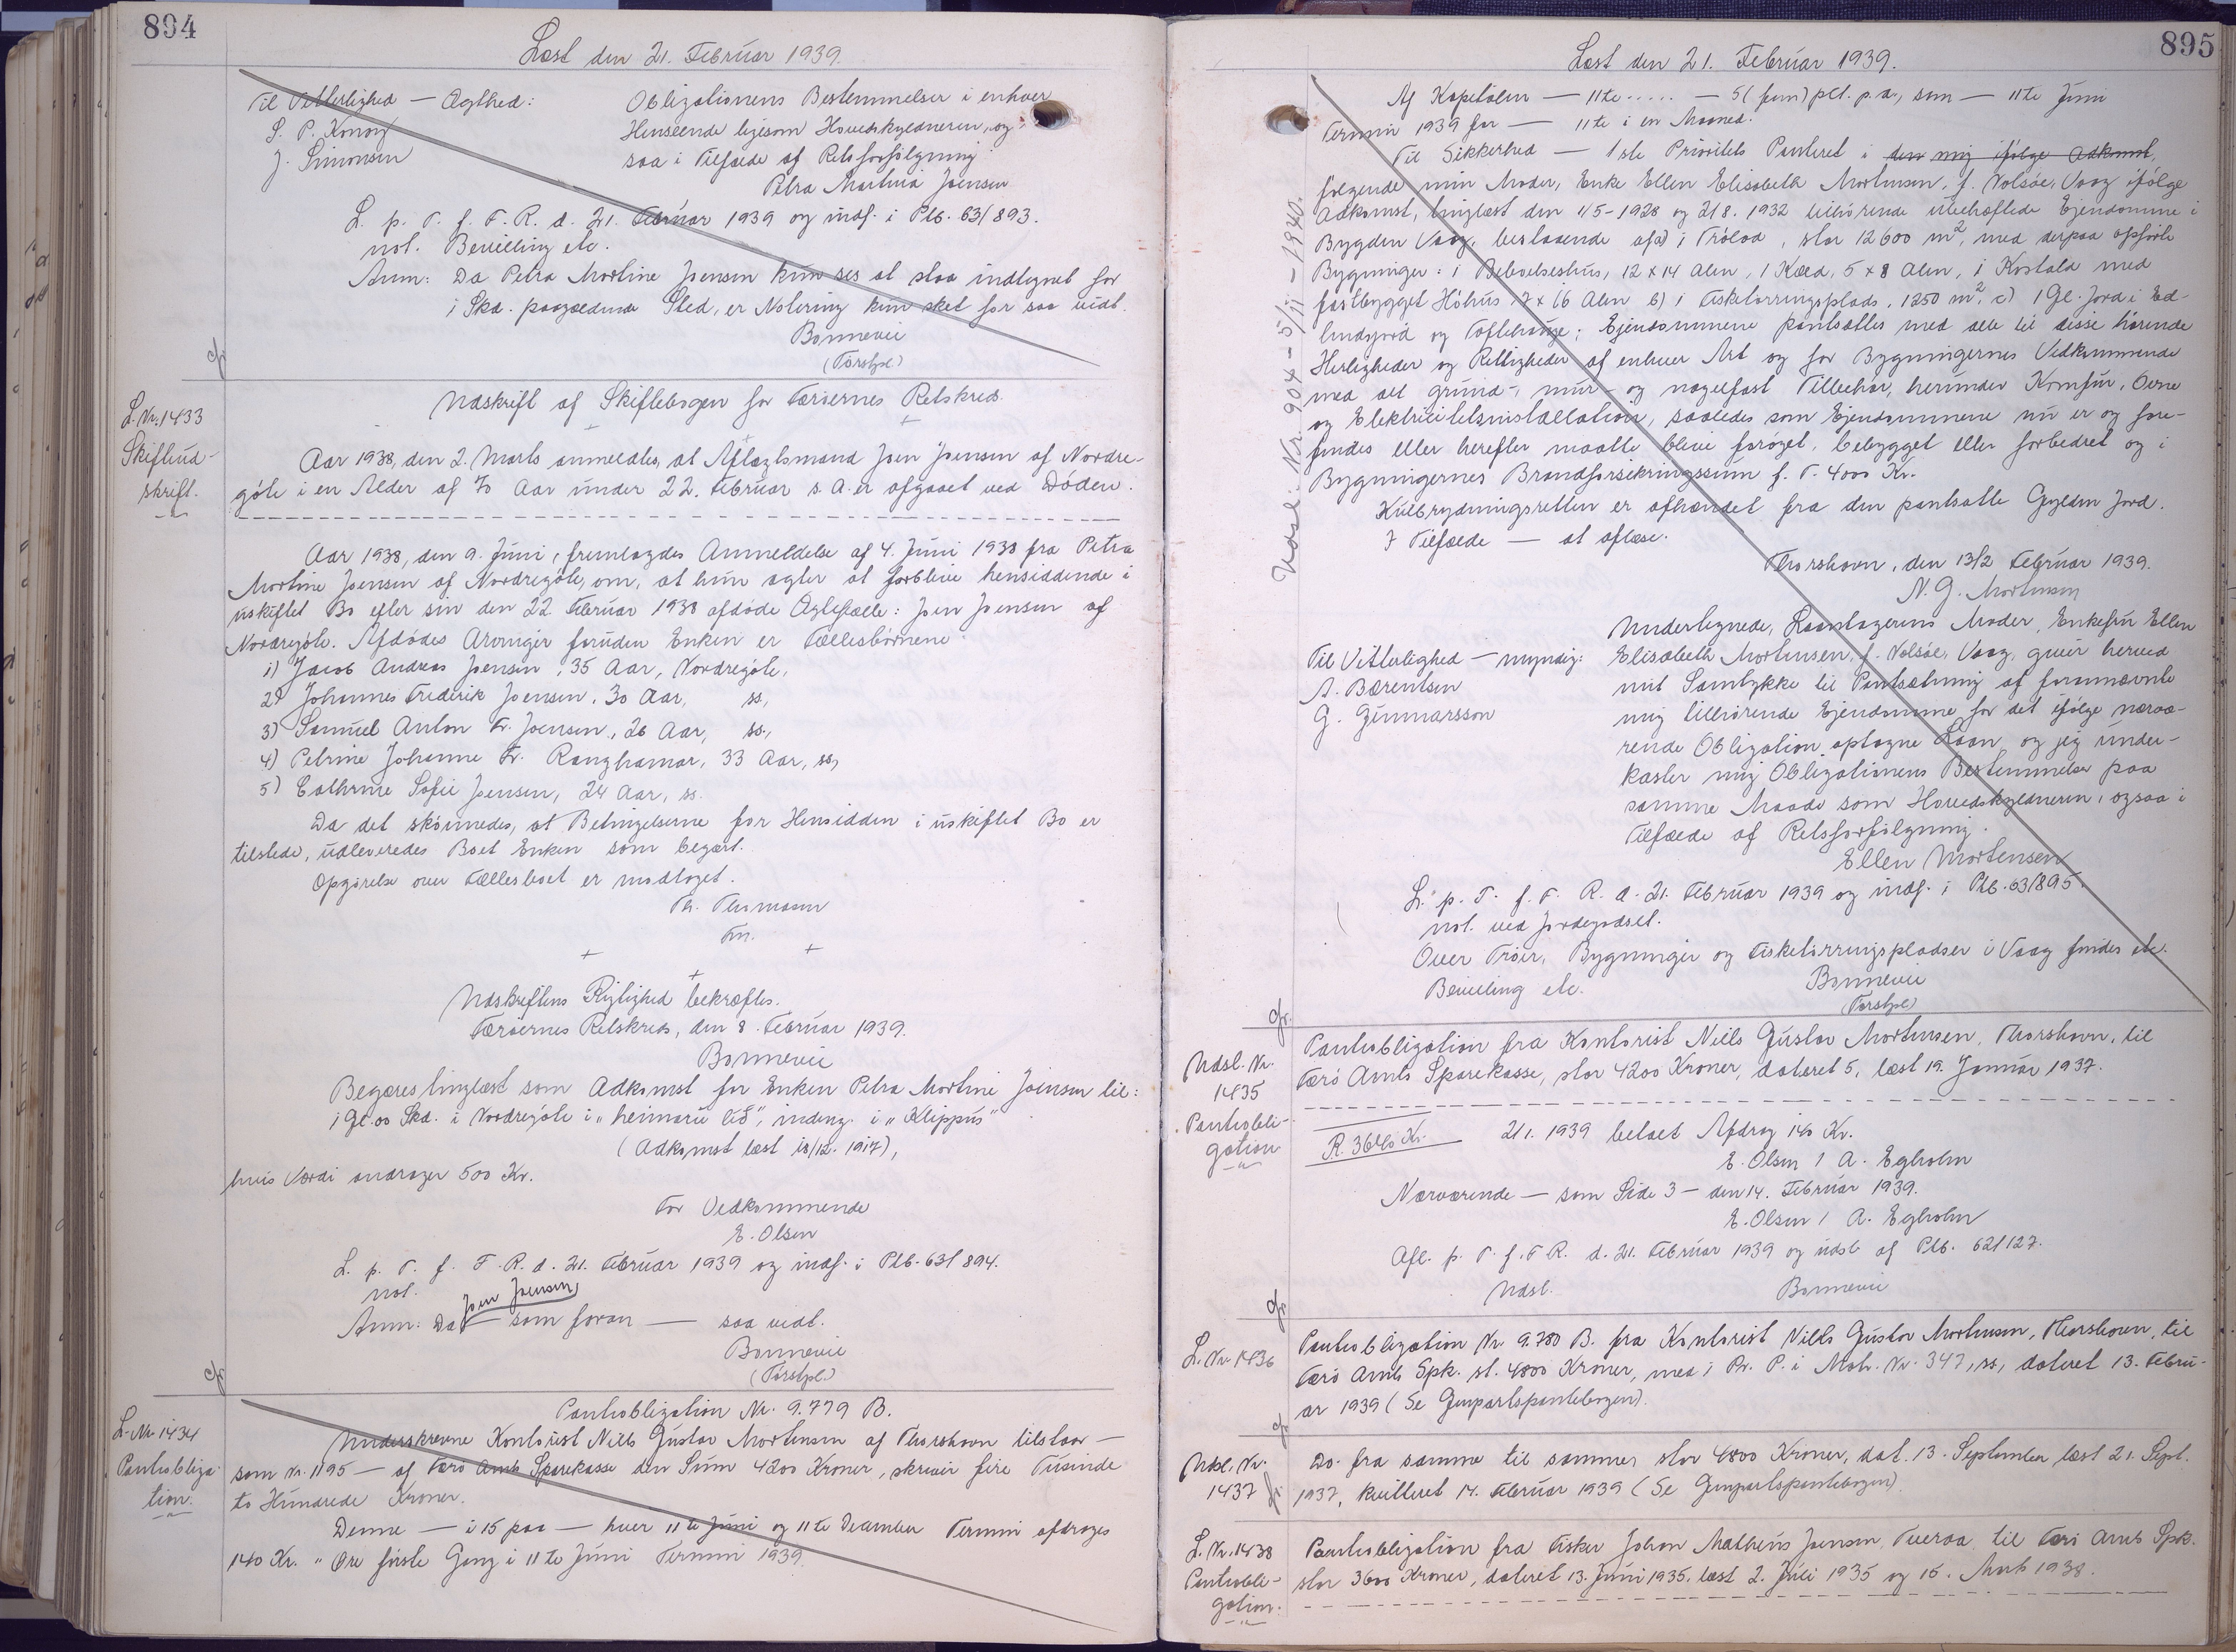 894
Læst den 21. Februar 1939.
Til Vitterlighed — Ægthed:
S. P. Konoy
J. Simonsen
Obligationens Bestemmelser i enhver
Henseende ligesom Hovedskyldneren, og-
saa i Tilfælde af Retsforfølgning
Petra Martina Joensen
L. p. T. f. F. R. d. 21. Februar 1939 og indf. i Ptb. 63/893.
not. Bevilling etc.
Anm: Da Petra Mortine Joensen kun ses at staa indtegnet for
i Skd. paagældende Sted, er Notering kun sket for saa vidt.
Bonnevie
(Torstpl)
L. Nr. 1433
Skifteud-
skrift.
Udskrift af Skiftebogen for Færöernes Retskreds.
Aar 1938, den 2. Marts anmeldtes, at Aftægtsmand Joen Joensen af Nordre-
göte i en Alder af 70 Aar under 22. Februar s. A. er afgaaet ved Döden.
Aar 1938, den 9. Juni, fremlagdes Anmeldelse af 4. Juni 1938 fra Petra
Mortine Joensen af Nordregöte, om, at hun agter at forblive hensiddende i
uskiftet Bo efter sin den 22 Februar 1938 afdöde Ægtefælle: Joen Joensen af
Nordregöte. Afdödes Arvinger foruden Enken er Fællesbörnene:
1) Jacob Andreas Joensen, 35 Aar, Nordregöte,
2) Johannes Frederik Joensen, 30 Aar, ss,
3) Samuel Anton Fr. Joensen, 26 Aar, ss.,
4) Petrine Johanne Fr. Ranghamar, 33 Aar, ss,
5) Cathrine Sofie Joensen, 24 Aar, ss.
Da det skönnedes, at Betingelserne for Hensidden i uskiftet Bo er
tilstede, udleveredes Boet Enken som begært.
Opgörelse over Fællesboet er modtaget.
Th. Thomasen
Fm.
Udskriftens Rigtighed bekræftes.
Færöernes Retskreds, den 8. Februar 1939.
Bonnevie
Begæres tinglæst som Adkomst for Enken Petra Mortine Joensen til:
1 Gl. 00 Skd. i Nordregöte i "heimaru lið", indeng. i "Klippus"
(Adkomst læst 18/12. 1917),
hvis Værdi andrager 500 Kr.
For Vedkommende
E. Olsen
L. p. T. f. F. R. d. 21. Februar 1939 og indf. i Ptb. 63/894.
not.
Joen Joensen
Anm: Da — som foran — saa vidt.
Bonnevie
(Torstpl)
L. Nr 1434
Pantobliga-
tion.
Pantobligation Nr. 9.779 B.
Underskrevne Kontorist Niels Gustav Mortensen af Thorshavn tilstaar —
som Nr. 1195 — af Færö Amts Sparekasse den Sum 4200 Kroner, skriver fire Tusinde
to Hundrede Kroner.
Denne — i 15 paa — hver 11te Juni og 11te December Termin afdrages
140 Kr. " Øre förste Gang i 11te Juni Termin 1939.
895
Læst den 21. Februar 1939.
Udsl. Nr. 904 - 5/11 - 1940.
Af Kapitalen — 11te ..... — 5 (fem) pct. p. a., som — 11te Juni
Termin 1939 for — 11te i en Maaned.
Til Sikkerhed — 1ste Prioritets Panteret i den mig ifölge Adkomst,
fölgende min Moder, Enke Ellen Elisabeth Mortensen, f. Volsöe, Vaag ifölge
Adkomst, tinglæst den 1/5-1928 og 2/8. 1932 tilhörende ubehæftede Ejendomme i
Bygden Vaag, bestaaende af a) i Tröloð, stor 12600 m², med derpaa opförte
Bygninger: 1 Beboelseshus, 12 x 14 Alen, 1 Kæld, 5 x 8 Alen, 1 Kostald med
fastbygget Höhus 7 x 16 Alen b) 1 Fisketörringsplads, 1250 m², c) 1 Gl. Jord i Ed-
lendsjord og Toftehauge; Ejendommene pantsættes med alle til disse hörende
Herligheder og Rettigheder af enhver Art og for Bygningernes Vedkommende
med alt grund-, mur- og nagelfast Tilbehör, herunder Komfur, Ovne
og Elektricitetsinstallation, saaledes som Ejendommene nu er og fore-
findes eller herefter maatte blive foröget, bebygget eller forbedret og i
Bygningernes Brandforsikringssum f. T. 4000 Kr.
Kulbrydningsretten er afhændet fra den pantsatte Gylden Jord.
I Tilfælde — at aflæse.
Thorshavn, den 13/2 Februar 1939.
N. G. Mortensen
Til Vitterlighed — myndig:
A. Bærentsen
G. Gunnarsson
Undertegnede, Laantagerens Moder, Enkefru Ellen
Elisabeth Mortensen, f. Volsöe, Vaag, giver herved
mit Samtykke til Pantsætning af forannævnte
mig tilhörende Ejendomme for det ifölge nærvæ-
rende Obligation optagne Laan, og jeg under-
kaster mig Obligationens Bestemmelser paa
samme Maade som Hovedskyldneren, ogsaa i
Tilfælde af Retsforfölgning.
Ellen Mortensen
L. p. T. f. F. R. d. 21. Februar 1939 og indf. i Ptb. 63/895.
not. ved Jordegodset.
Over Tröer, Bygninger og Fisketörringspladser i Vaag findes etc.
Bevilling etc.
Bonnevie
(Torstpl)
Udsl. Nr.
1435
Pantobli-
gation
Pantobligation fra Kontorist Niels Gustav Mortensen, Thorshavn, til
Færö Amts Sparekasse, stor 4200 Kroner, dateret 5, læst 19. Januar 1937.
R. 3640 Kr.
2/1. 1939 betalt Afdrag 140 Kr.
E. Olsen / A. Egholm
Nærværende — som Side 3 — den 14. Februar 1939.
E. Olsen / A. Egholm
Afl. p. T. f. F. R. d. 21. Februar 1939 og udsl. af Ptb. 62/127.
Udsl.
Bonnevie
L. Nr 1436
Pantobligation Nr 9.780 B. fra Kontorist Niels Gustav Mortensen, Thorshavn, til
Færö Amts Spk. st. 4800 Kroner, med 1 Pr. P. i Matr. Nr. 347, ss, dateret 13. Febru-
ar 1939 (Se Genpartspantebogen).
Udsl. Nr.
1437
Do. fra samme til samme, stor 4800 Kroner, dat. 13. September læst 21. Sept.
1937, kvitteret 14. Februar 1939 (Se Genpartspantebogen).
L. Nr. 1438
Pantobli-
gation.
Pantobligation fra Fisker Johan Mathæus Joensen, Tveraa til Færö Amts Spk.
stor 3600 Kroner, dateret 13. Juni 1935, læst 2. Juli 1935 og 15. Marts 1938.